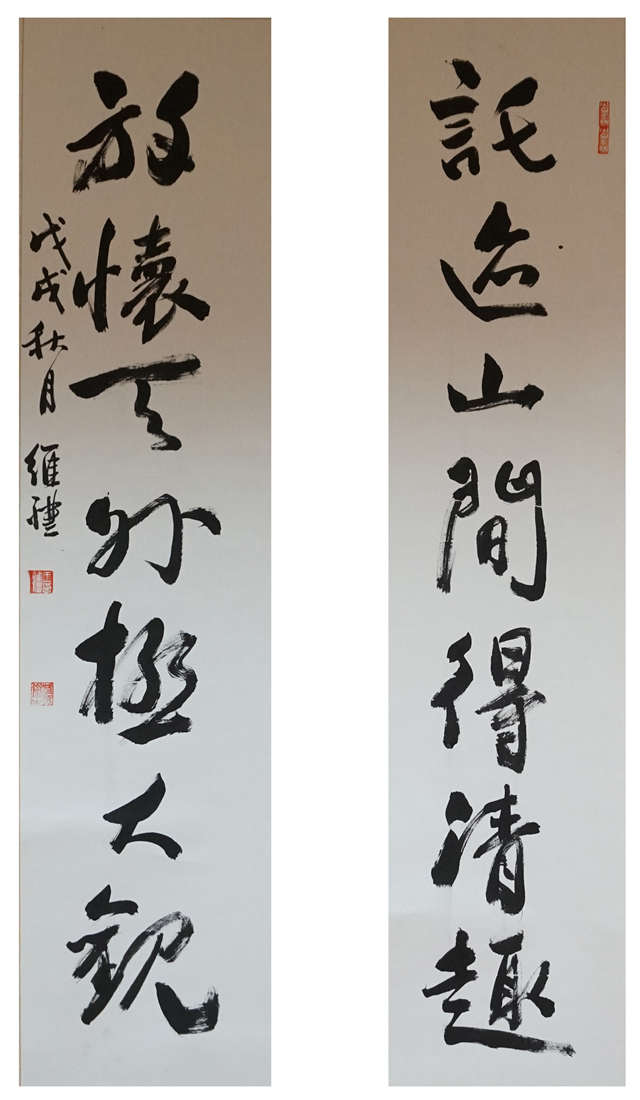 託迹山間得清趣
放懷天外極大觀
戊戌秋月 維禮